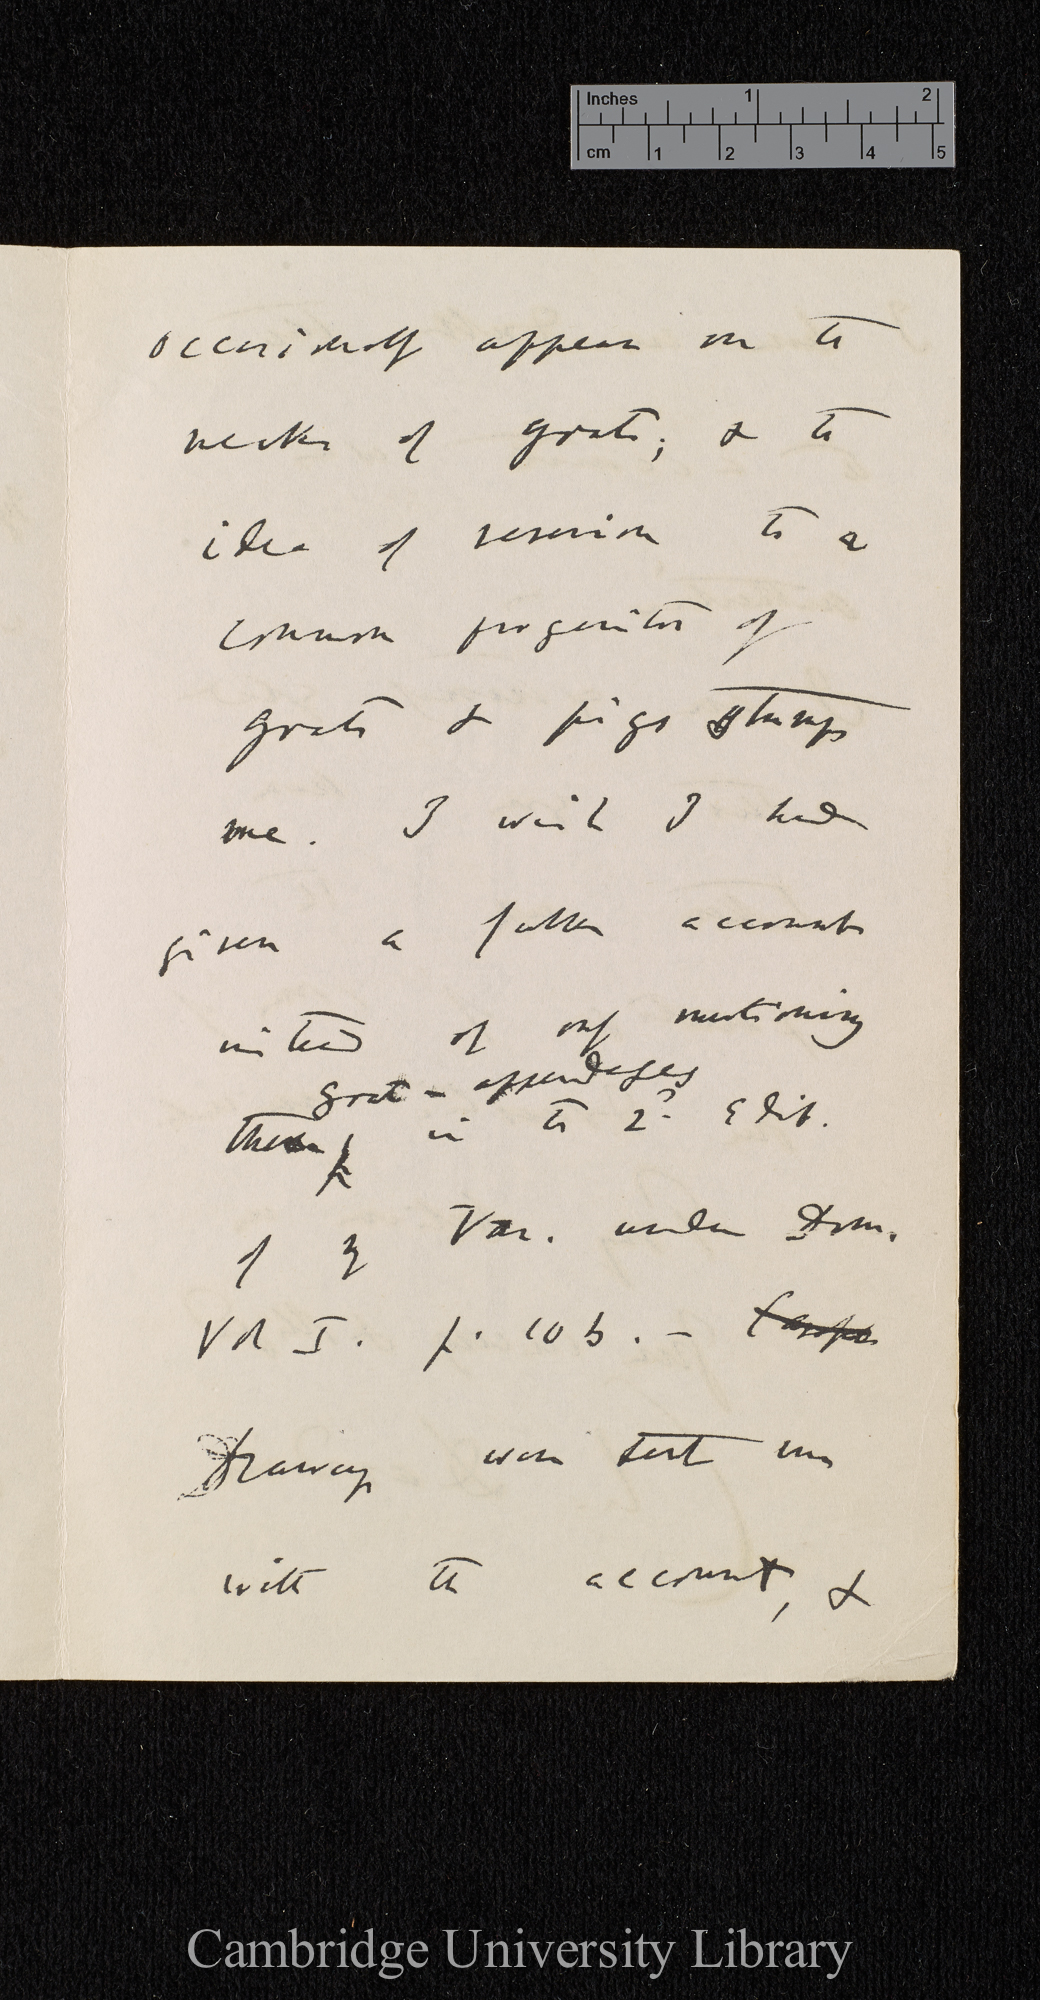 Inches 1 2
cm 1 2 3 4 5
occasionally appear on the
necks of goats; & the
idea of reversion to a
common progenitor of
goats & pigs stumps
me. I wish I had
given a fuller account
instead of only mentioning
goat-appendages
these in the 2d. Edit.
of my Var. under Dom.
Vol I. p. 106. —
Drawings were sent me
with the account, &
Cambridge University Library